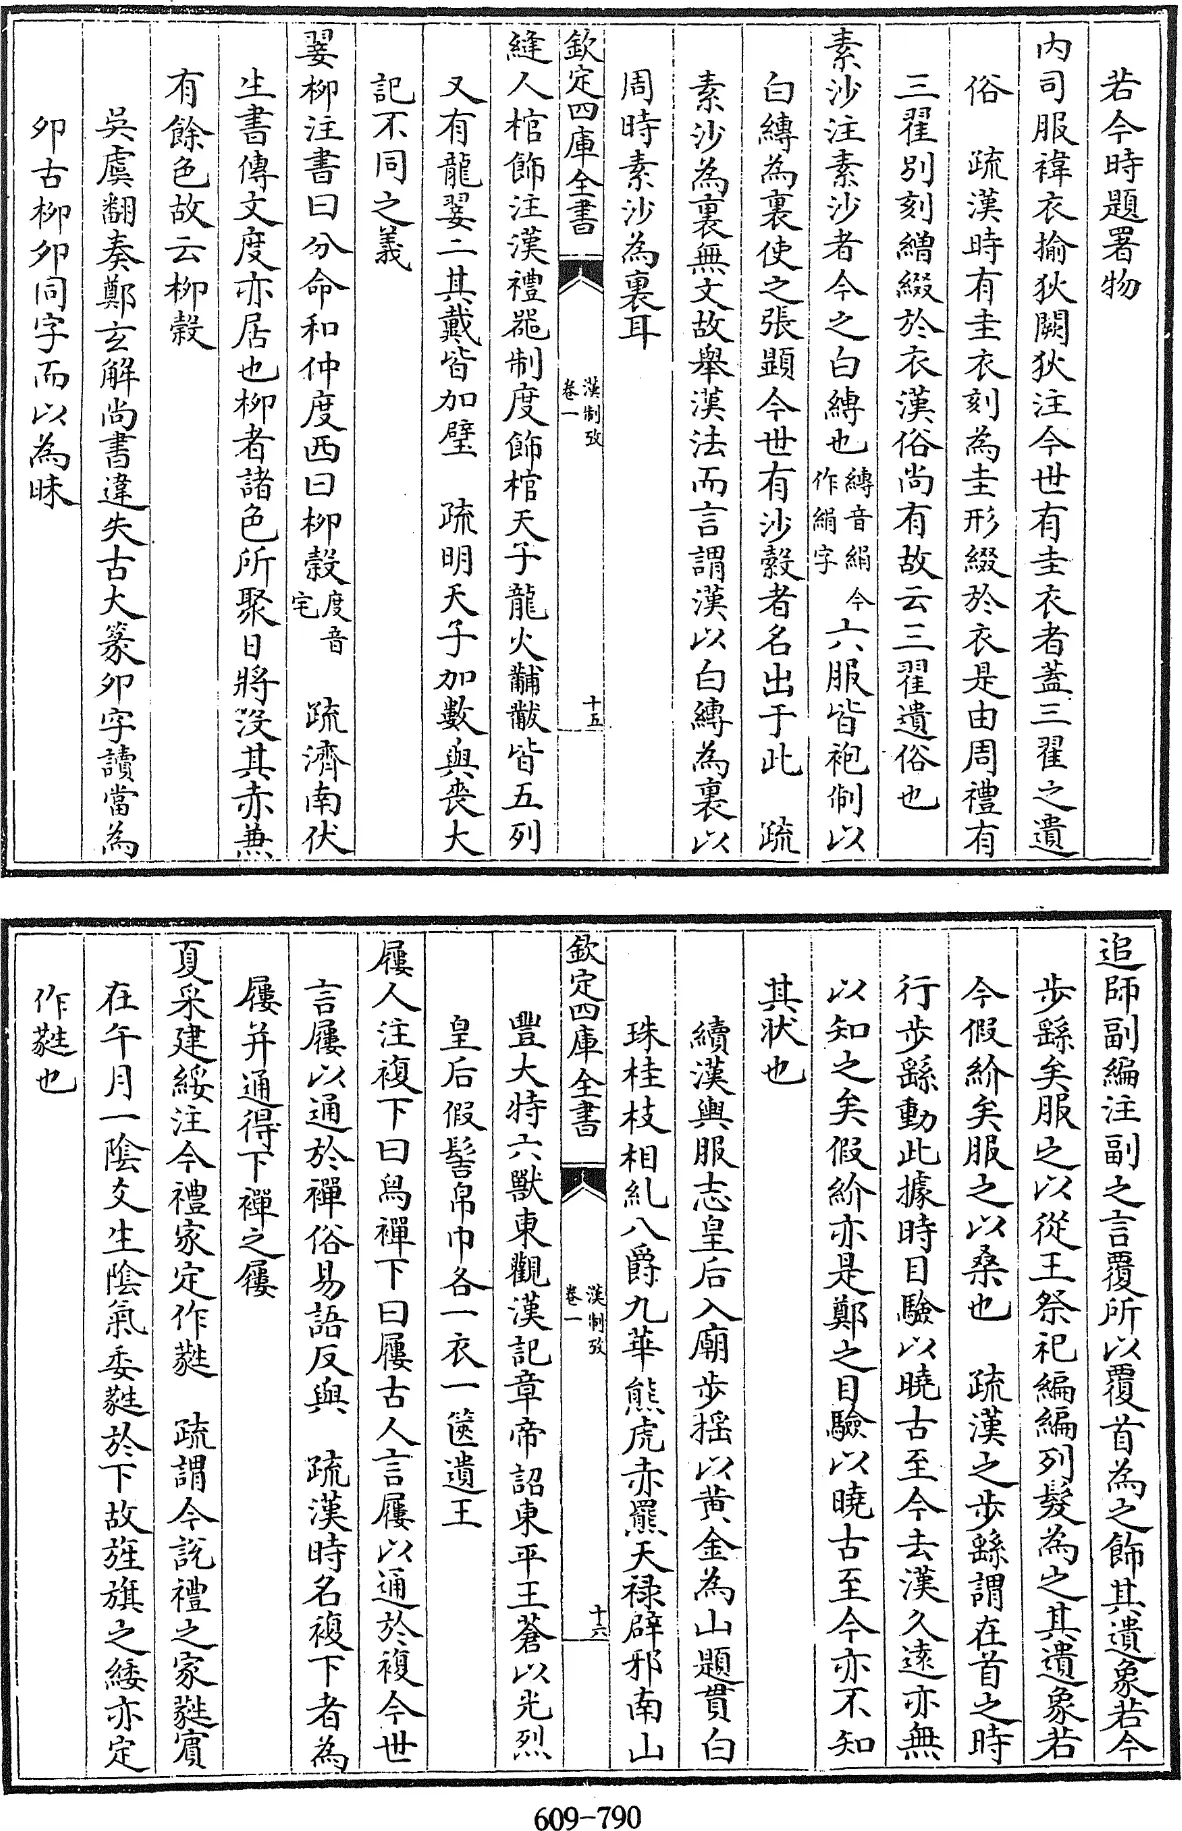 若今時題署物
內司服褘衣揄狄闕狄注今世有圭衣者蓋三翟之遺
俗　疏漢時有圭衣刻為圭形綴於衣是由周禮有
三翟別刻繒綴於衣漢俗尚有故云三翟遺俗也
素沙注素沙者今之白縳也縳音絹今作絹字六服皆袍制以
白縳為裏使之張顯今世有沙縠者名出于此　疏
素沙為裏無文故舉漢法而言謂漢以白縳為裏以
周時素沙為裏耳
欽定四庫全書　漢制攷卷一　十五
縫人棺飾注漢禮器制度飾棺天子龍火黼黻皆五列
又有龍翣二其戴皆加璧　疏明天子加數與喪大
記不同之義
翣柳注書曰分命和仲度西曰柳穀度音宅　疏濟南伏
生書傳文度亦居也柳者諸色所聚日將沒其赤兼
有餘色故云柳穀
吳虞翻奏鄭玄解尚書違失古大篆丣字讀當為
丣古柳丣同字而以為昧
追師副編注副之言覆所以覆首為之飾其遺象若今
步繇矣服之以從王祭祀編編列髮為之其遺象若
今假紒矣服之以桑也　疏漢之步繇謂在首之時
行步繇動此據時目驗以曉古至今去漢久遠亦無
以知之矣假紒亦是鄭之目驗以曉古至今亦不知
其狀也
續漢輿服志皇后入廟步搖以黃金為山題貫白
珠桂枝相糺八爵九華熊虎赤羆天祿辟邪南山
欽定四庫全書　漢制攷卷一　十六
豐大特六獸東觀漢記章帝詔東平王蒼以光烈
皇后假髻帛巾各一衣一篋遺王
屨人注複下曰舄禪下曰屨古人言屨以通於複今世
言屨以通於禪俗易語反與　疏漢時名複下者為
屨并通得下禪之屨
夏采建綏注今禮家定作蕤　疏謂今說禮之家蕤賓
在午月一陰爻生陰氣委蕤於下故旌旗之緌亦定
作蕤也
609-790